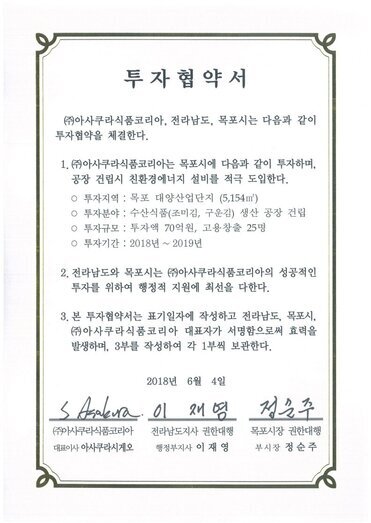 투자협약서
㈜아사쿠라식품코리아, 전라남도, 목포시는 다음과 같이
투자협약을 체결한다.
1. ㈜아사쿠라식품코리아는 목포시에 다음과 같이 투자하며,
공장 건립시 친환경에너지 설비를 적극 도입한다.
○ 투자지역 : 목포 대양산업단지 (5,154㎡)
○ 투자분야 : 수산식품(조미김, 구운김) 생산 공장 건립
○ 투자규모 : 투자액 70억원, 고용창출 25명
○ 투자기간 : 2018년 ~ 2019년
2. 전라남도와 목포시는 ㈜아사쿠라식품코리아의 성공적인
투자를 위하여 행정적 지원에 최선을 다한다.
3. 본 투자협약서는 표기일자에 작성하고 전라남도, 목포시,
㈜아사쿠라식품코리아 대표자가 서명함으로써 효력을
발생하며, 3부를 작성하여 각 1부씩 보관한다.
2018년 6월 4일
S Asakura. 이재영 정순주
㈜아사쿠라식품코리아 전라남도지사 권한대행 목포시장 권한대행
대표이사 아사쿠라시게오 행정부지사 이재영 부시장 정순주